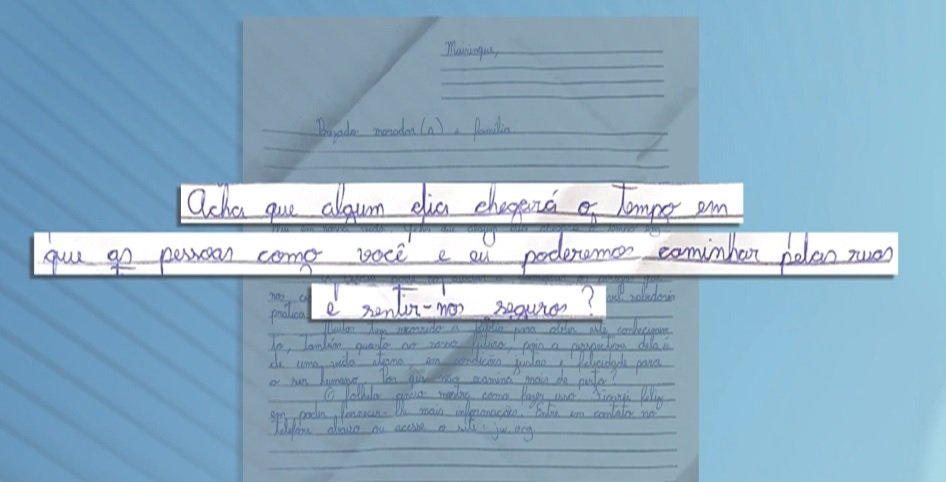 Mairinque,
Prezado morador(a) e família
Acha que algum dia chegará o tempo em
que as pessoas como você e eu poderemos caminhar pelas ruas
e sentir-nos seguros?
sabedoria
prática.
Muitos tem recorrido a Bíblia para obter este conhecimen-
to, também quanto ao nosso futuro, pois a perspectiva dela é
de uma vida eterna em condições justas e felicidade para
o ser humano. Por que não examina mais de perto?
O folheto anexo mostra como fazer isso. Ficarei feliz
em poder fornecer-lhe mais informações. Entre em contato no
telefone abaixo ou acesse o site: jw.org.